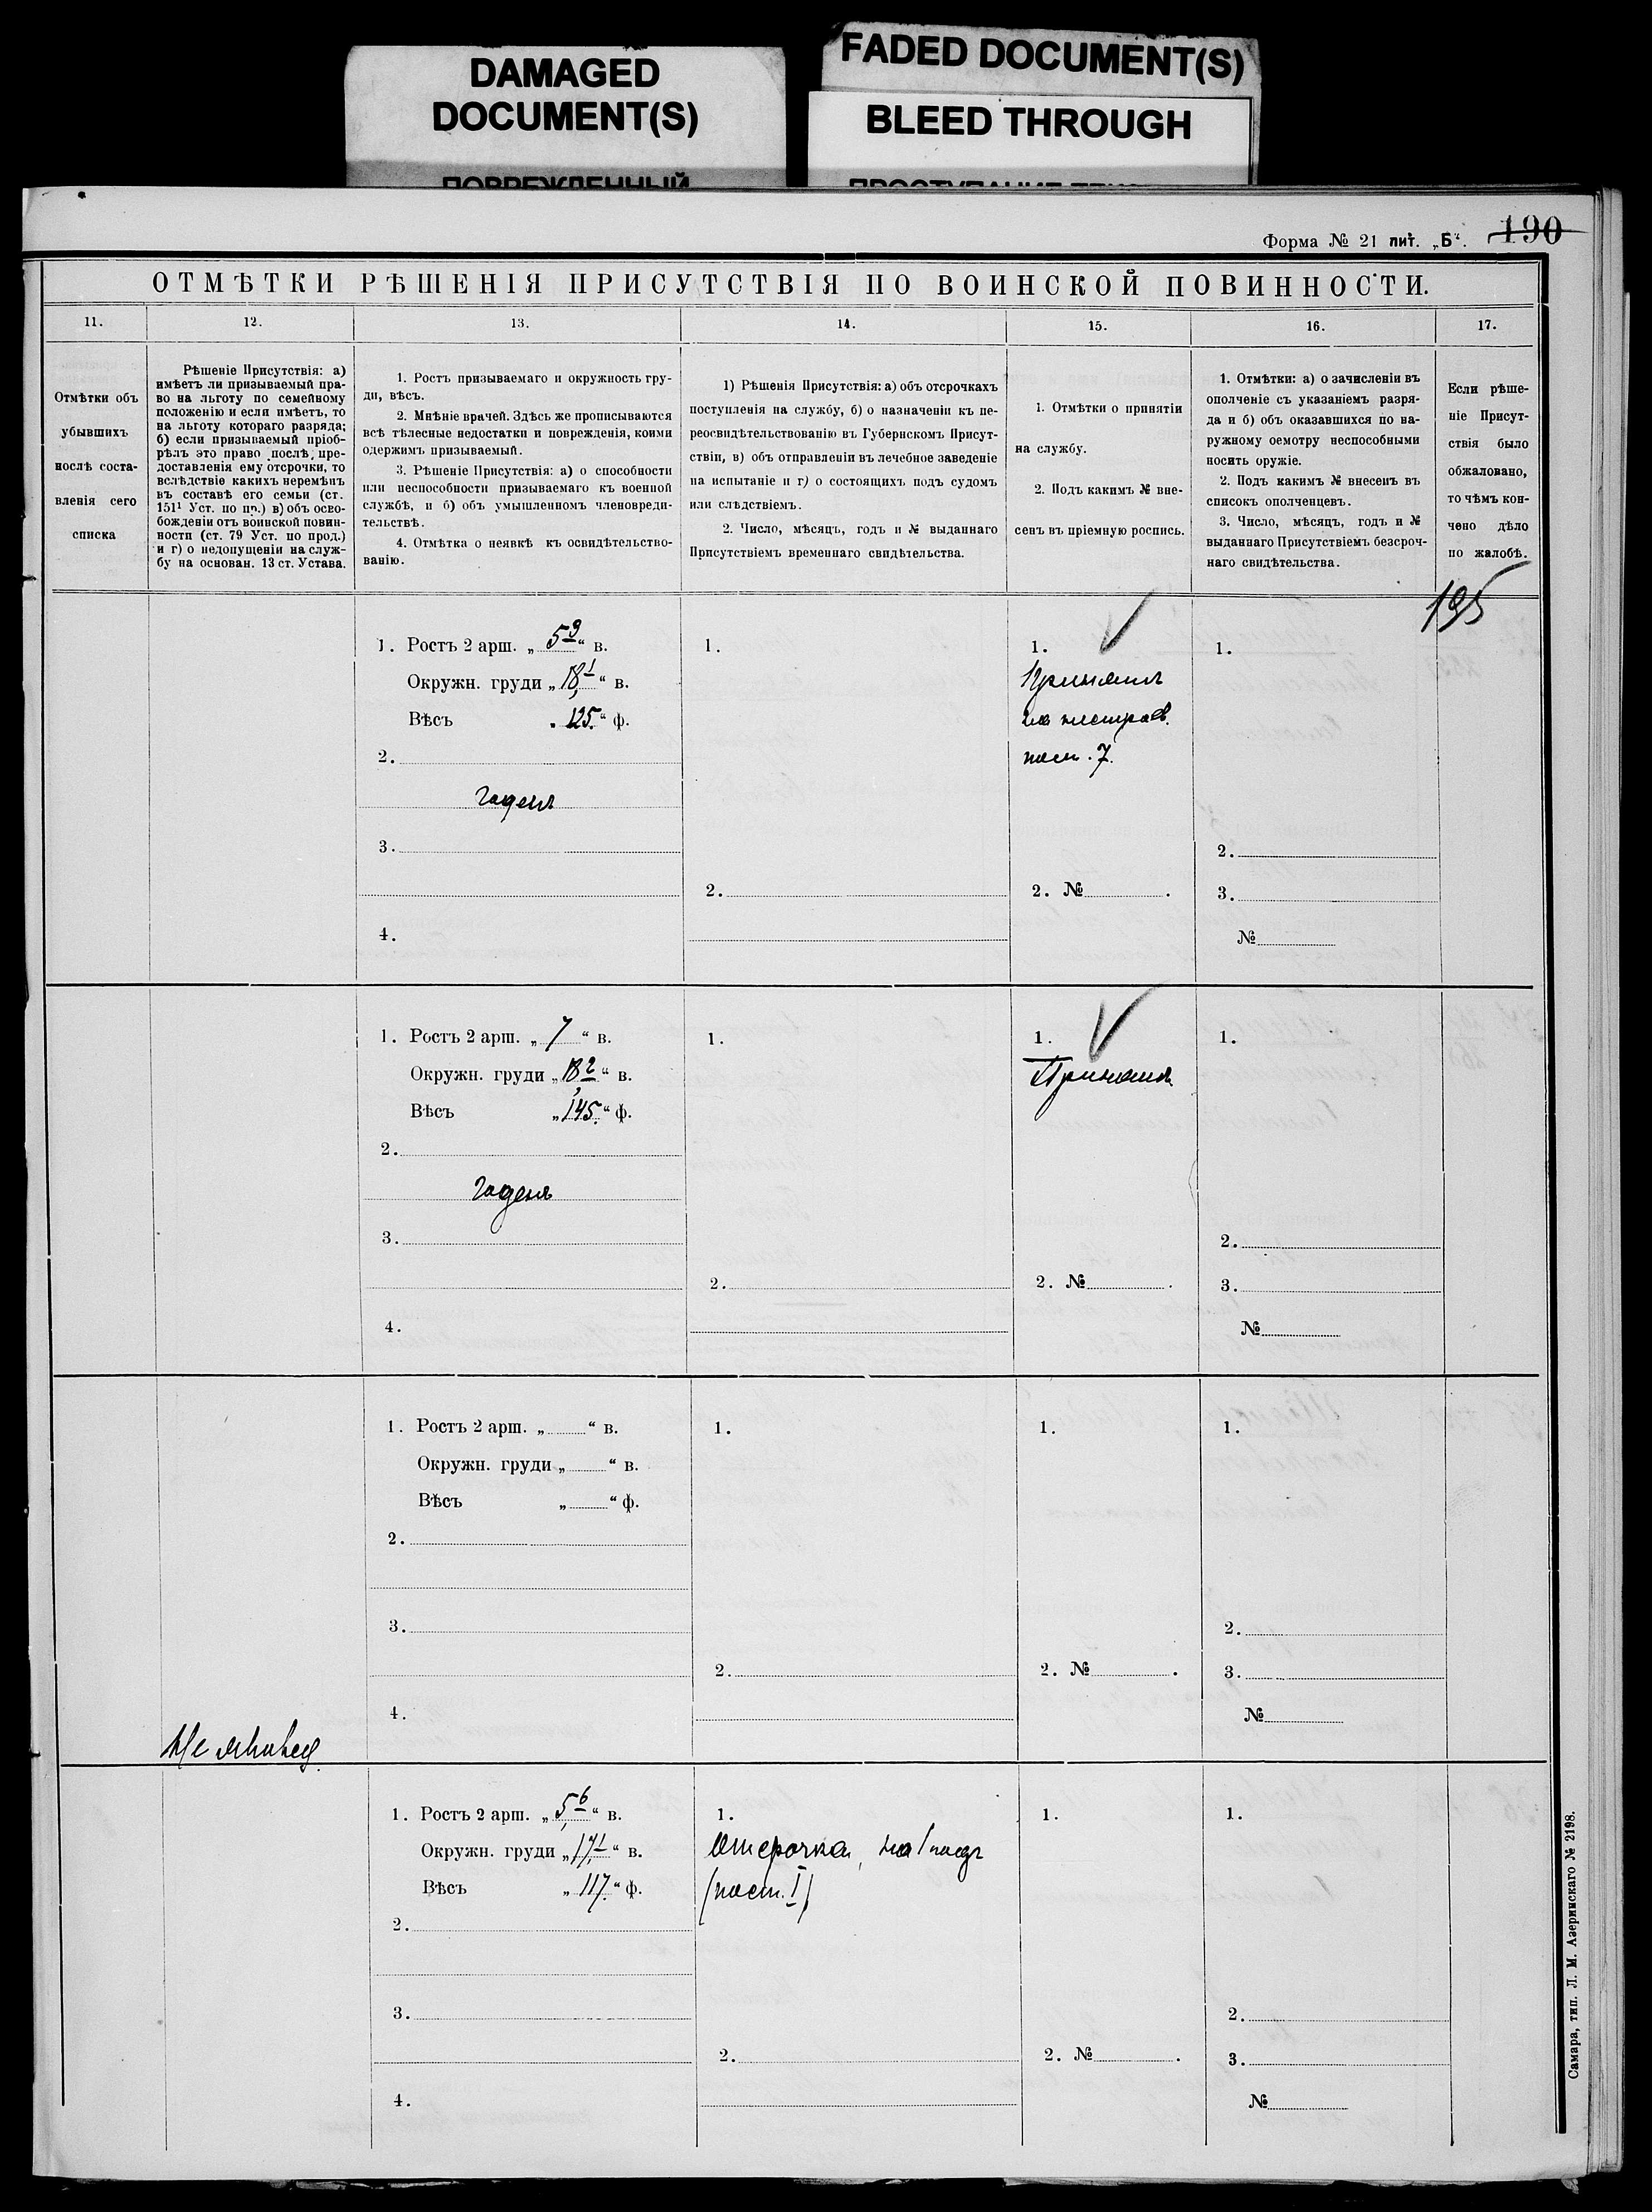 DAMAGED
DOCUMENT(S)
ПОВРЕЖДЕННЫЙ
FADED DOCUMENT(S)
BLEED THROUGH
Форма № 21 лит. „Б“. 190
ОТМѢТКИ РѢШЕНІЯ ПРИСУТСТВІЯ ПО ВОИНСКОЙ ПОВИННОСТИ.
11. 12. 13. 14. 15. 16. 17.
Отмѣтки объ
убывшихъ
послѣ соста-
вленія сего
списка
Рѣшеніе Присутствія: а)
имѣетъ ли призываемый пра-
во на льготу по семейному
положенію и если имѣетъ, то
на льготу котораго разряда;
б) если призываемый пріоб-
рѣлъ это право послѣ пре-
доставленія ему отсрочки, то
вслѣдствіе какихъ перемѣнъ
въ составѣ его семьи (ст.
151¹ Уст. по пр.) в) объ осво-
божденіи отъ воинской повин-
ности (ст. 79 Уст. по прод.)
и г) о недопущеніи на служ-
бу на основан. 13 ст. Устава.
1. Ростъ призываемаго и окружность гру-
ди, вѣсъ.
2. Мнѣніе врачей. Здѣсь же прописываются
всѣ тѣлесные недостатки и поврежденія, коими
одержимъ призываемый.
3. Рѣшеніе Присутствія: а) о способности
или неспособности призываемаго къ военной
службѣ, и б) объ умышленномъ членовреди-
тельствѣ.
4. Отмѣтка о неявкѣ къ освидѣтельство-
ванію.
1) Рѣшенія Присутствія: а) объ отсрочкахъ
поступленія на службу, б) о назначеніи къ пе-
реосвидѣтельствованію въ Губернскомъ Присут-
ствіи, в) объ отправленіи въ лечебное заведеніе
на испытаніе и г) о состоящихъ подъ судомъ
или слѣдствіемъ.
2. Число, мѣсяцъ, годъ и № выданнаго
Присутствіемъ временнаго свидѣтельства.
1. Отмѣтки о принятіи
на службу.
2. Подъ какимъ № вне-
сенъ въ пріемную роспись.
1. Отмѣтки: а) о зачисленіи въ
ополченіе съ указаніемъ разря-
да и б) объ оказавшихся по на-
ружному осмотру неспособными
носить оружіе.
2. Подъ какимъ № внесенъ въ
списокъ ополченцевъ.
3. Число, мѣсяцъ, годъ и №
выданнаго Присутствіемъ безсроч-
наго свидѣтельства.
Если рѣше-
ніе Присут-
ствія было
обжаловано,
то чѣмъ кон-
чено дѣло
по жалобѣ.
195
1. Ростъ 2 арш. „ 5 3 “ в.
Окружн. груди „ 18 1 “ в.
Вѣсъ „ 125. “ ф.
2.
годенъ
3.
4.
1.
2.
1.
Принятъ
на нестроев.
пост. 7.
2. №
1.
2.
3.
№
1. Ростъ 2 арш. „ 7 “ в.
Окружн. груди „ 18 2 “ в.
Вѣсъ „ 145. “ ф.
2.
годенъ
3.
4.
1.
2.
1.
Принятъ
2. №
1.
2.
3.
№
Не явился
1. Ростъ 2 арш. „ “ в.
Окружн. груди „ “ в.
Вѣсъ „ “ ф.
2.
3.
4.
1.
2.
1.
2. №
1.
2.
3.
№
1. Ростъ 2 арш. „ 5 6 “ в.
Окружн. груди „ 17 1 “ в.
Вѣсъ „ 117. “ ф.
2.
3.
4.
1.
Отсрочка на 1 годъ
(пост. I)
2.
1.
2. №
1.
2.
3.
№
Самара, тип. Л. М. Азеринскаго № 2198.